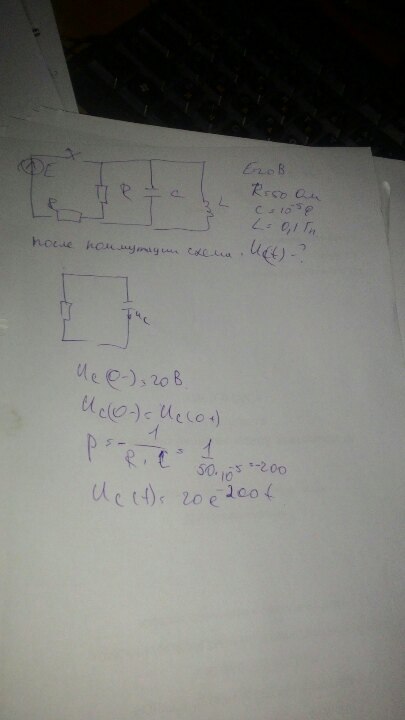 E
R
R
C
L
E=20 В
R=50 Ом
C=10⁻⁵Ф
L=0,1 Гн
после коммутации схема.
Uc(t)-?
uc
Uc(0-)=20В.
Uc(0-)=Uc(0+)
p=-1/(R·C)=1/(50·10⁻⁵)=-200
Uc(t)=20e⁻²⁰⁰ᵗ